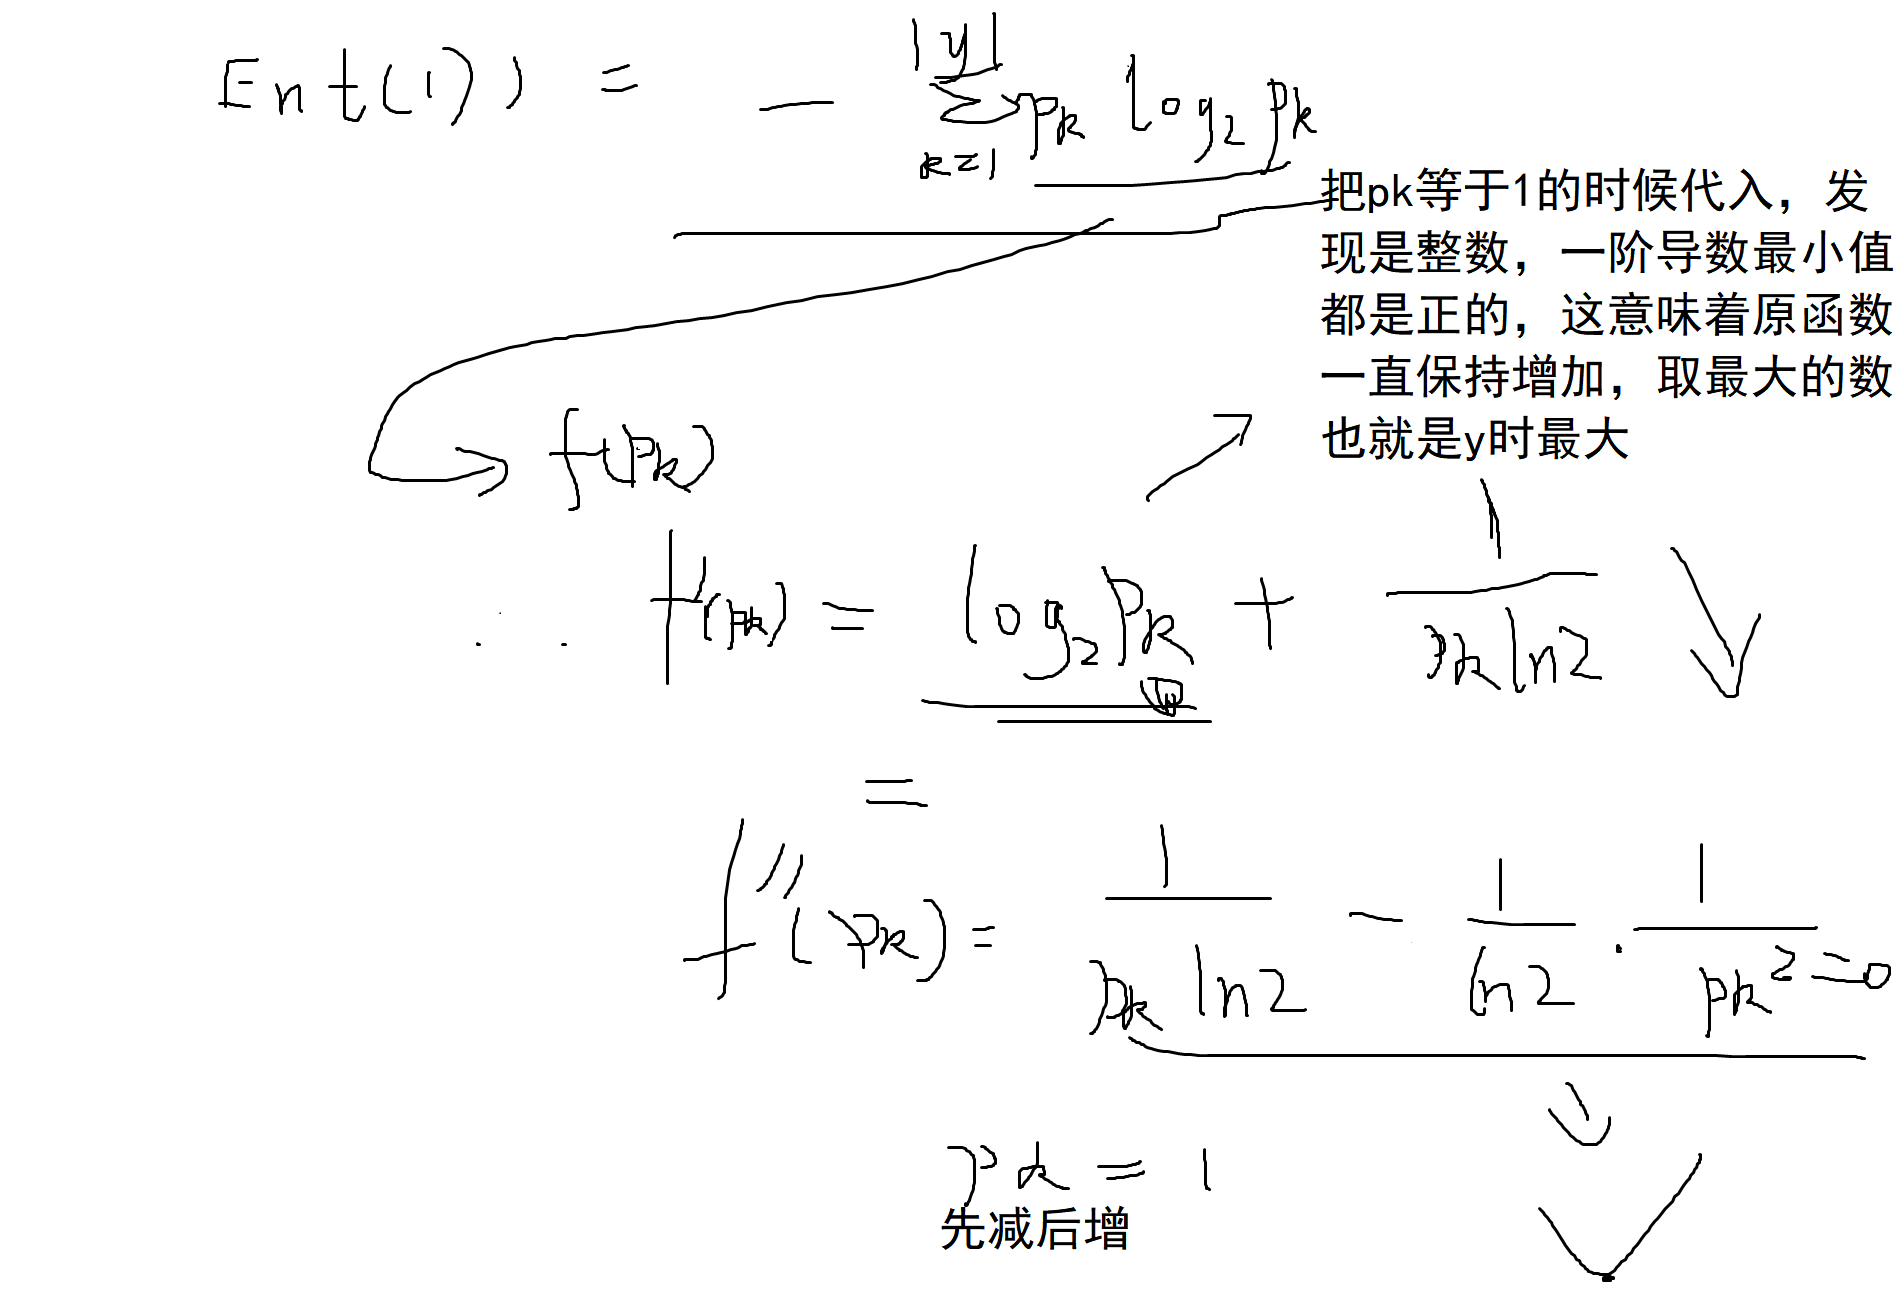 Ent(D) = - |y| ∑ k=1 pk log2 pk
把pk等于1的时候代入，发
现是整数，一阶导数最小值
都是正的，这意味着原函数
一直保持增加，取最大的数
也就是y时最大
f(pk)
f'(pk) = log2 pk + 1/(pk ln2)
=
f''(pk) = 1/(pk ln2) - 1/ln2 · 1/pk² = 0
pk = 1
先减后增